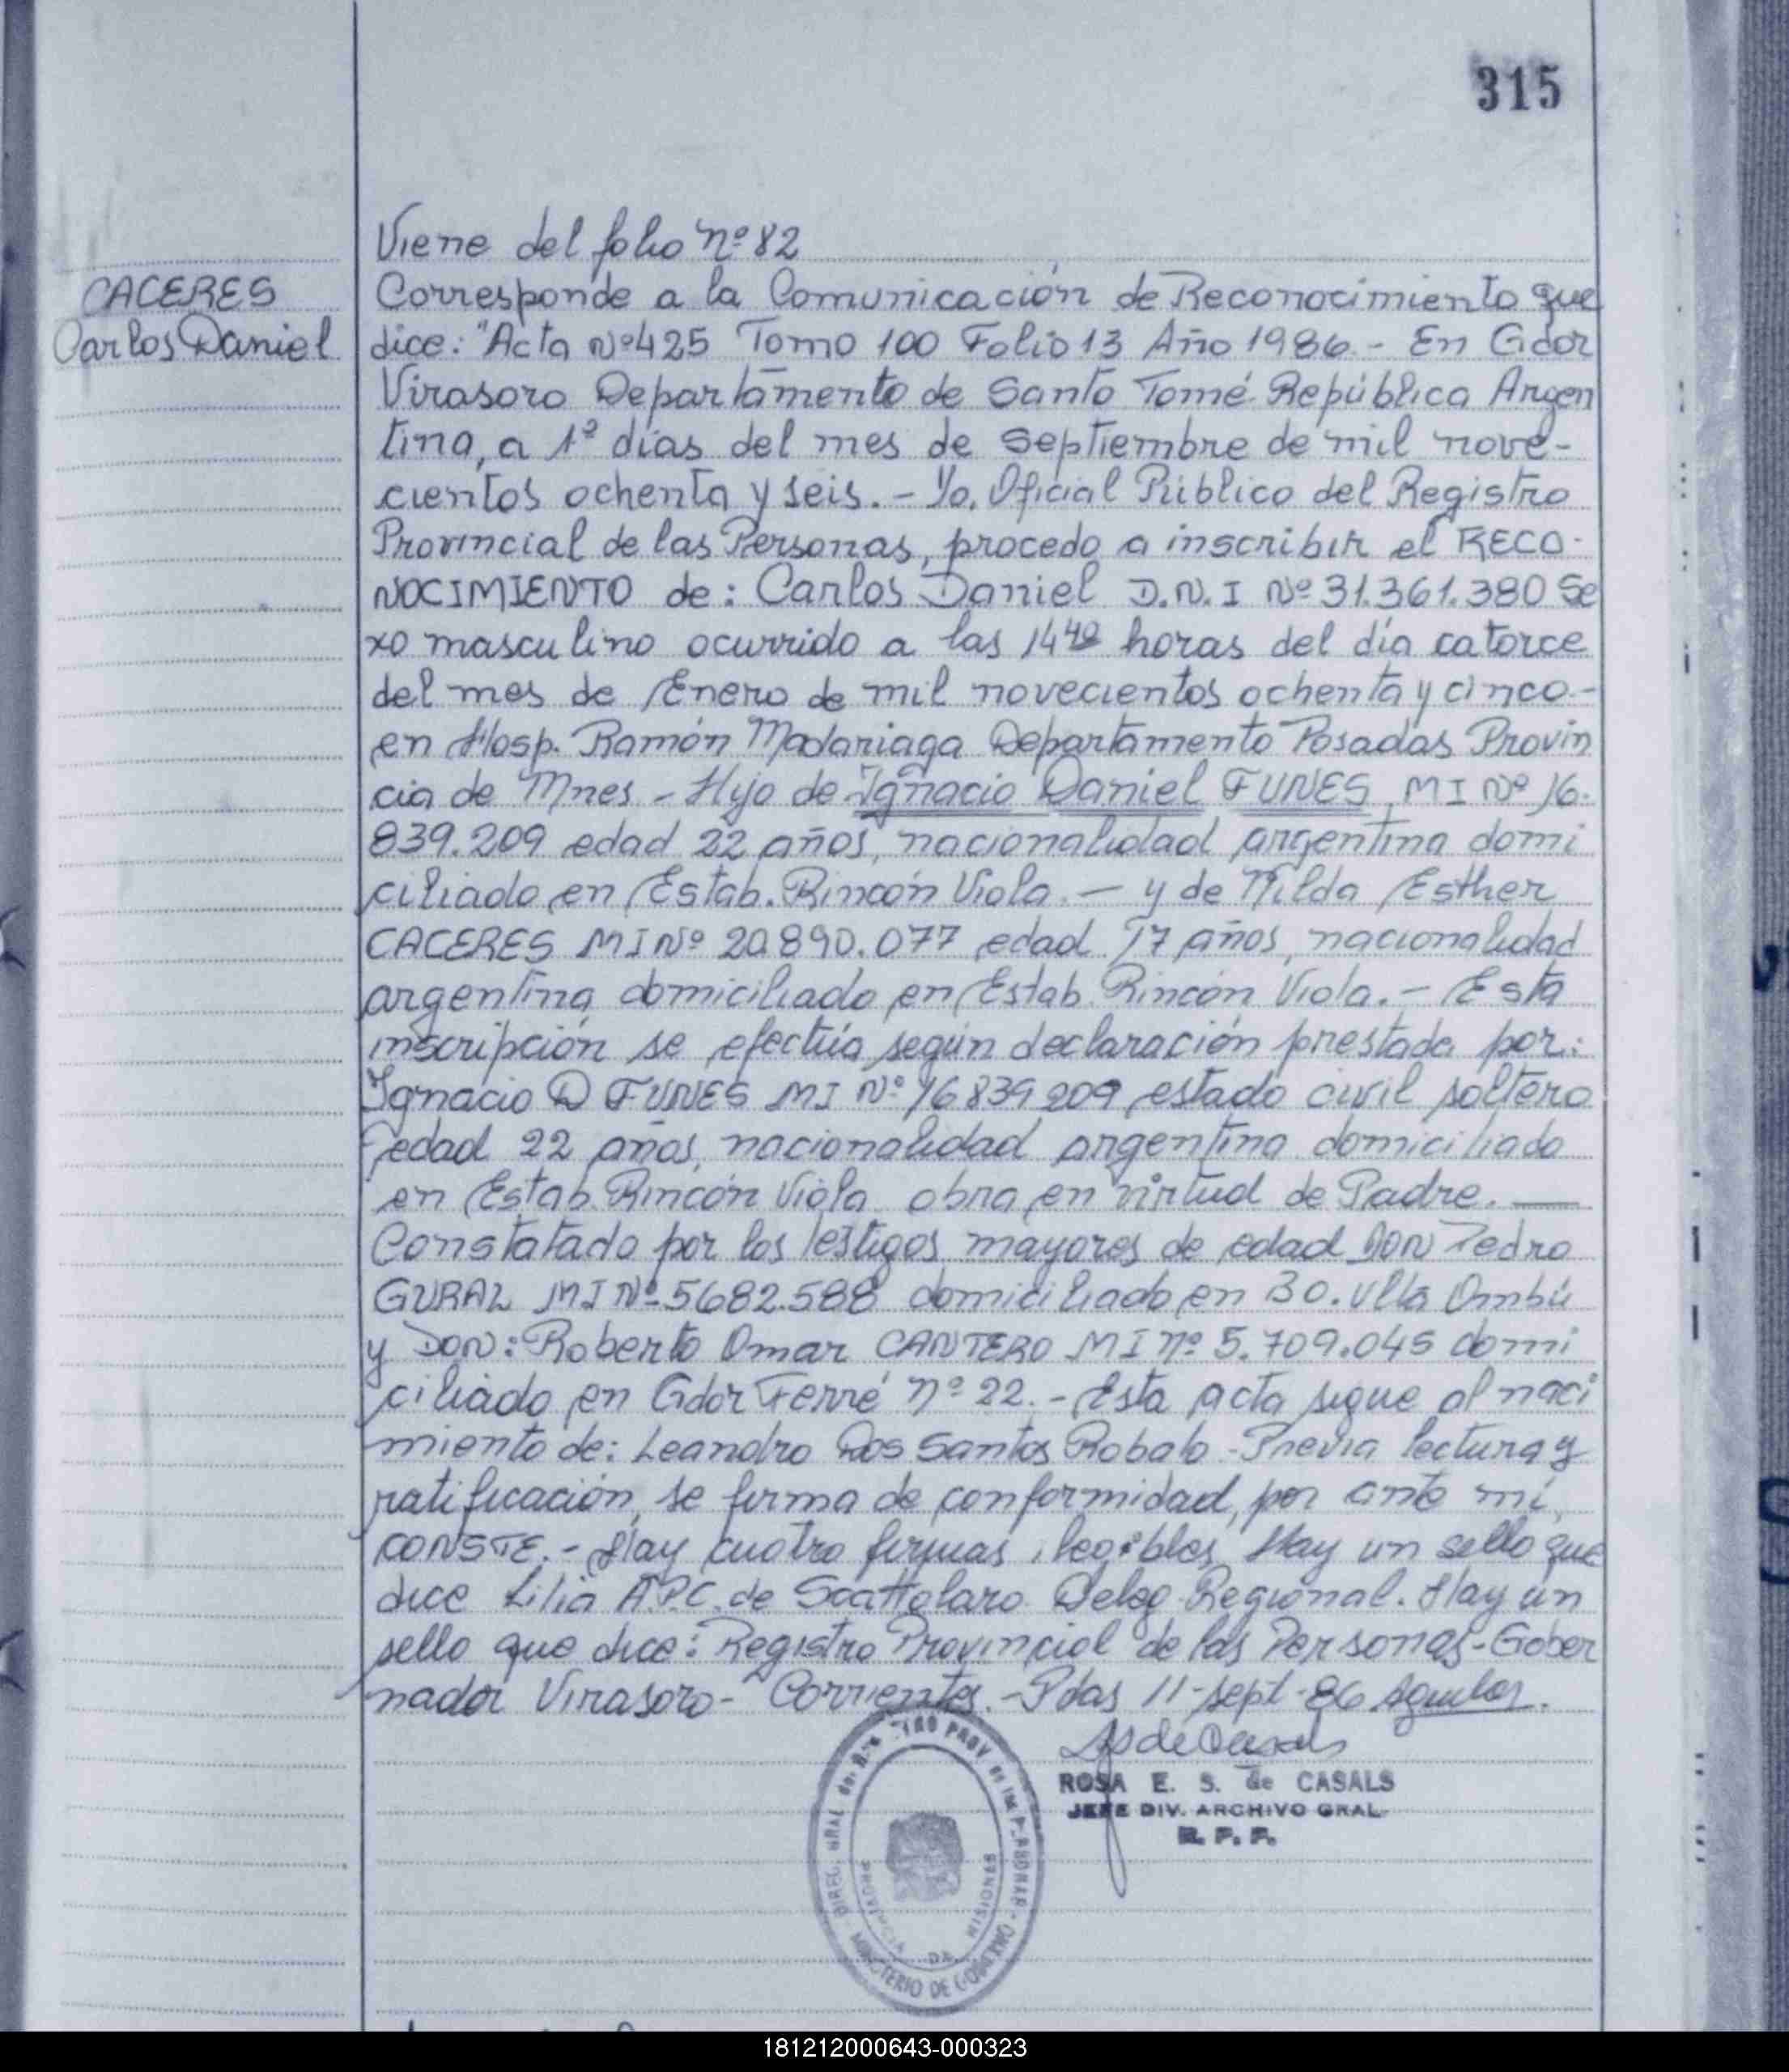 315
Viene del folio Nº 82
CACERES
Carlos Daniel
Corresponde a la Comunicación de Reconocimiento que
dice: "Acta Nº 425 Tomo 100 Folio 13 Año 1986.- En Gdor
Virasoro Departamento de Santo Tomé República Argen
tina, a 1º días del mes de Septiembre de mil nove-
cientos ochenta y seis.- Yo, Oficial Público del Registro
Provincial de las Personas, procedo a inscribir el RECO-
NOCIMIENTO de: Carlos Daniel D.N.I Nº 31.361.380 Se
xo masculino ocurrido a las 14 horas del día catorce
del mes de Enero de mil novecientos ochenta y cinco.-
en Hosp. Ramón Madariaga Departamento Posadas Provin
cia de Mnes - Hijo de Ignacio Daniel FUNES, MI Nº 16.
839.209 edad 22 años, nacionalidad argentina domi
ciliado en Estab. Rincón Viola.- y de Nilda Esther
CACERES MI Nº 20.890.077 edad 17 años, nacionalidad
argentina domiciliado en Estab. Rincón Viola.- Esta
inscripción se efectúa según declaración prestada por:
Ignacio D FUNES MI Nº 16 839 209 estado civil soltero
edad 22 años, nacionalidad argentina domiciliado
en Estab. Rincón Viola obra en virtud de Padre. —
Constatado por los testigos mayores de edad DON Pedro
GURAL MI Nº 5682.588 domiciliado en 30. Vlla Ombú
y DON: Roberto Omar CANTERO MI Nº 5.709.045 domi
ciliado en Gdor Ferré Nº 22.- Esta acta sigue al naci
miento de: Leandro Dos Santos Robalo - Previa lectura y
ratificación, se firma de conformidad, por ante mí,
CONSTE.- Hay cuatro firmas ilegibles, Hay un sello que
dice Lilia A.P.C. de Scattolaro Deleg Regional. Hay un
sello que dice: Registro Provincial de las Personas - Gober
nador Virasoro - Corrientes.- Pdas 11-sept-86 Aguilar.
ROSA E. S. de CASALS
JEFE DIV. ARCHIVO GRAL.
R. P. P.
PROVINCIA DE MISIONES
MINISTERIO DE GOBIERNO
181212000643-000323